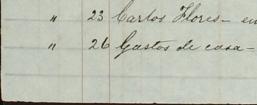 " 23 Carlos Flores - en
" 26 Gastos de casa -